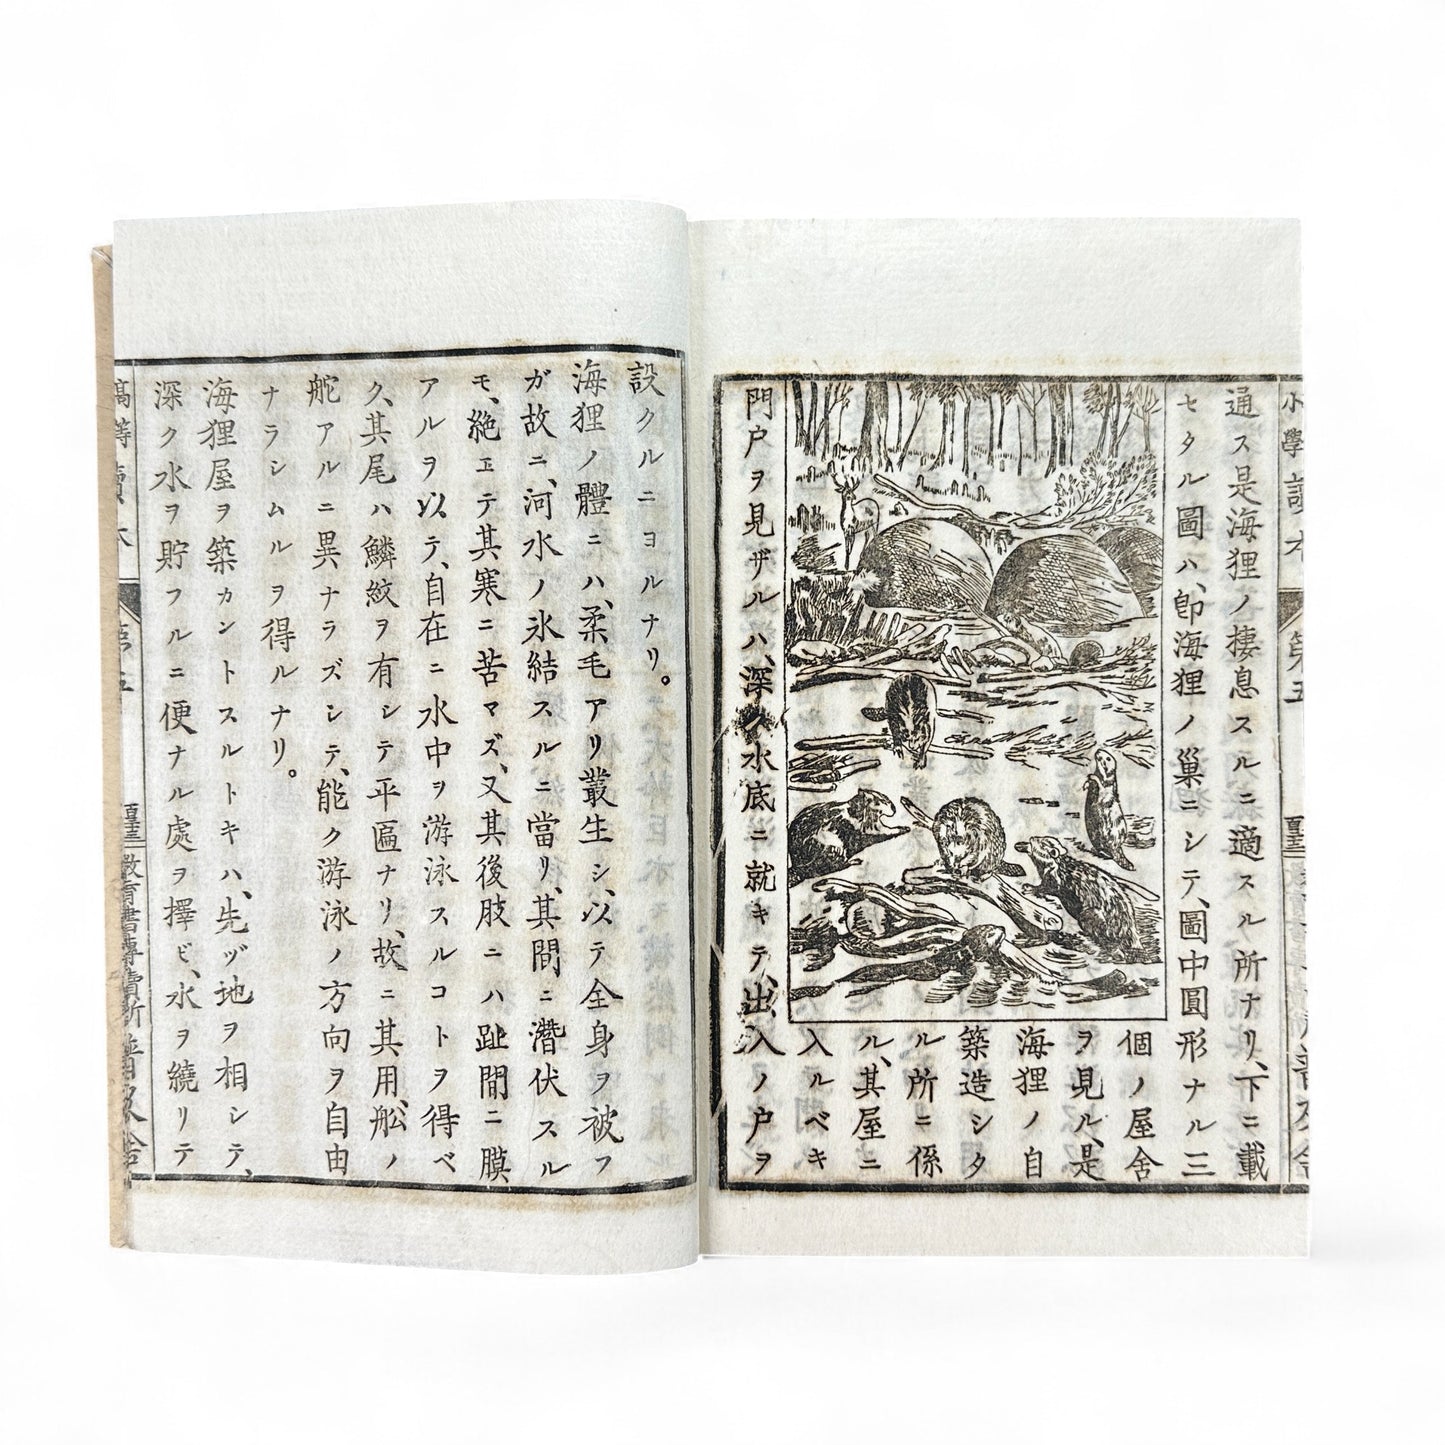 通ス是海狸ノ棲息スルニ適スル所ナリ、下ニ載
セタル圖ハ、卽海狸ノ巢ニシテ、圖中圓形ナル三
個ノ屋舍
ヲ見ル、是
海狸ノ自
築造シタ
ル所ニ係
ル、其屋ニ
入ルベキ
門戸ヲ見ザルハ、深ク水底ニ就キテ、出入ノ戸ヲ
設クルニヨルナリ。
海狸ノ體ニハ、柔毛アリ叢生シ、以テ全身ヲ被フ
ガ故ニ、河水ノ氷結スルニ當リ、其間ニ潛伏スル
モ、絶エテ其寒ニ苦マズ、又其後肢ニハ趾間ニ膜
アルヲ以テ、自在ニ水中ヲ游泳スルコトヲ得ベ
ク、其尾ハ鱗紋ヲ有シテ平匾ナリ、故ニ其用、舩ノ
舵アルニ異ナラズシテ、能ク游泳ノ方向ヲ自由
ナラシムルヲ得ルナリ。
海狸屋ヲ築カントスルトキハ、先ヅ地ヲ相シテ、
深ク水ヲ貯フルニ便ナル處ヲ擇ビ、水ヲ繞リテ
高等讀本
第五
教育書專賣所